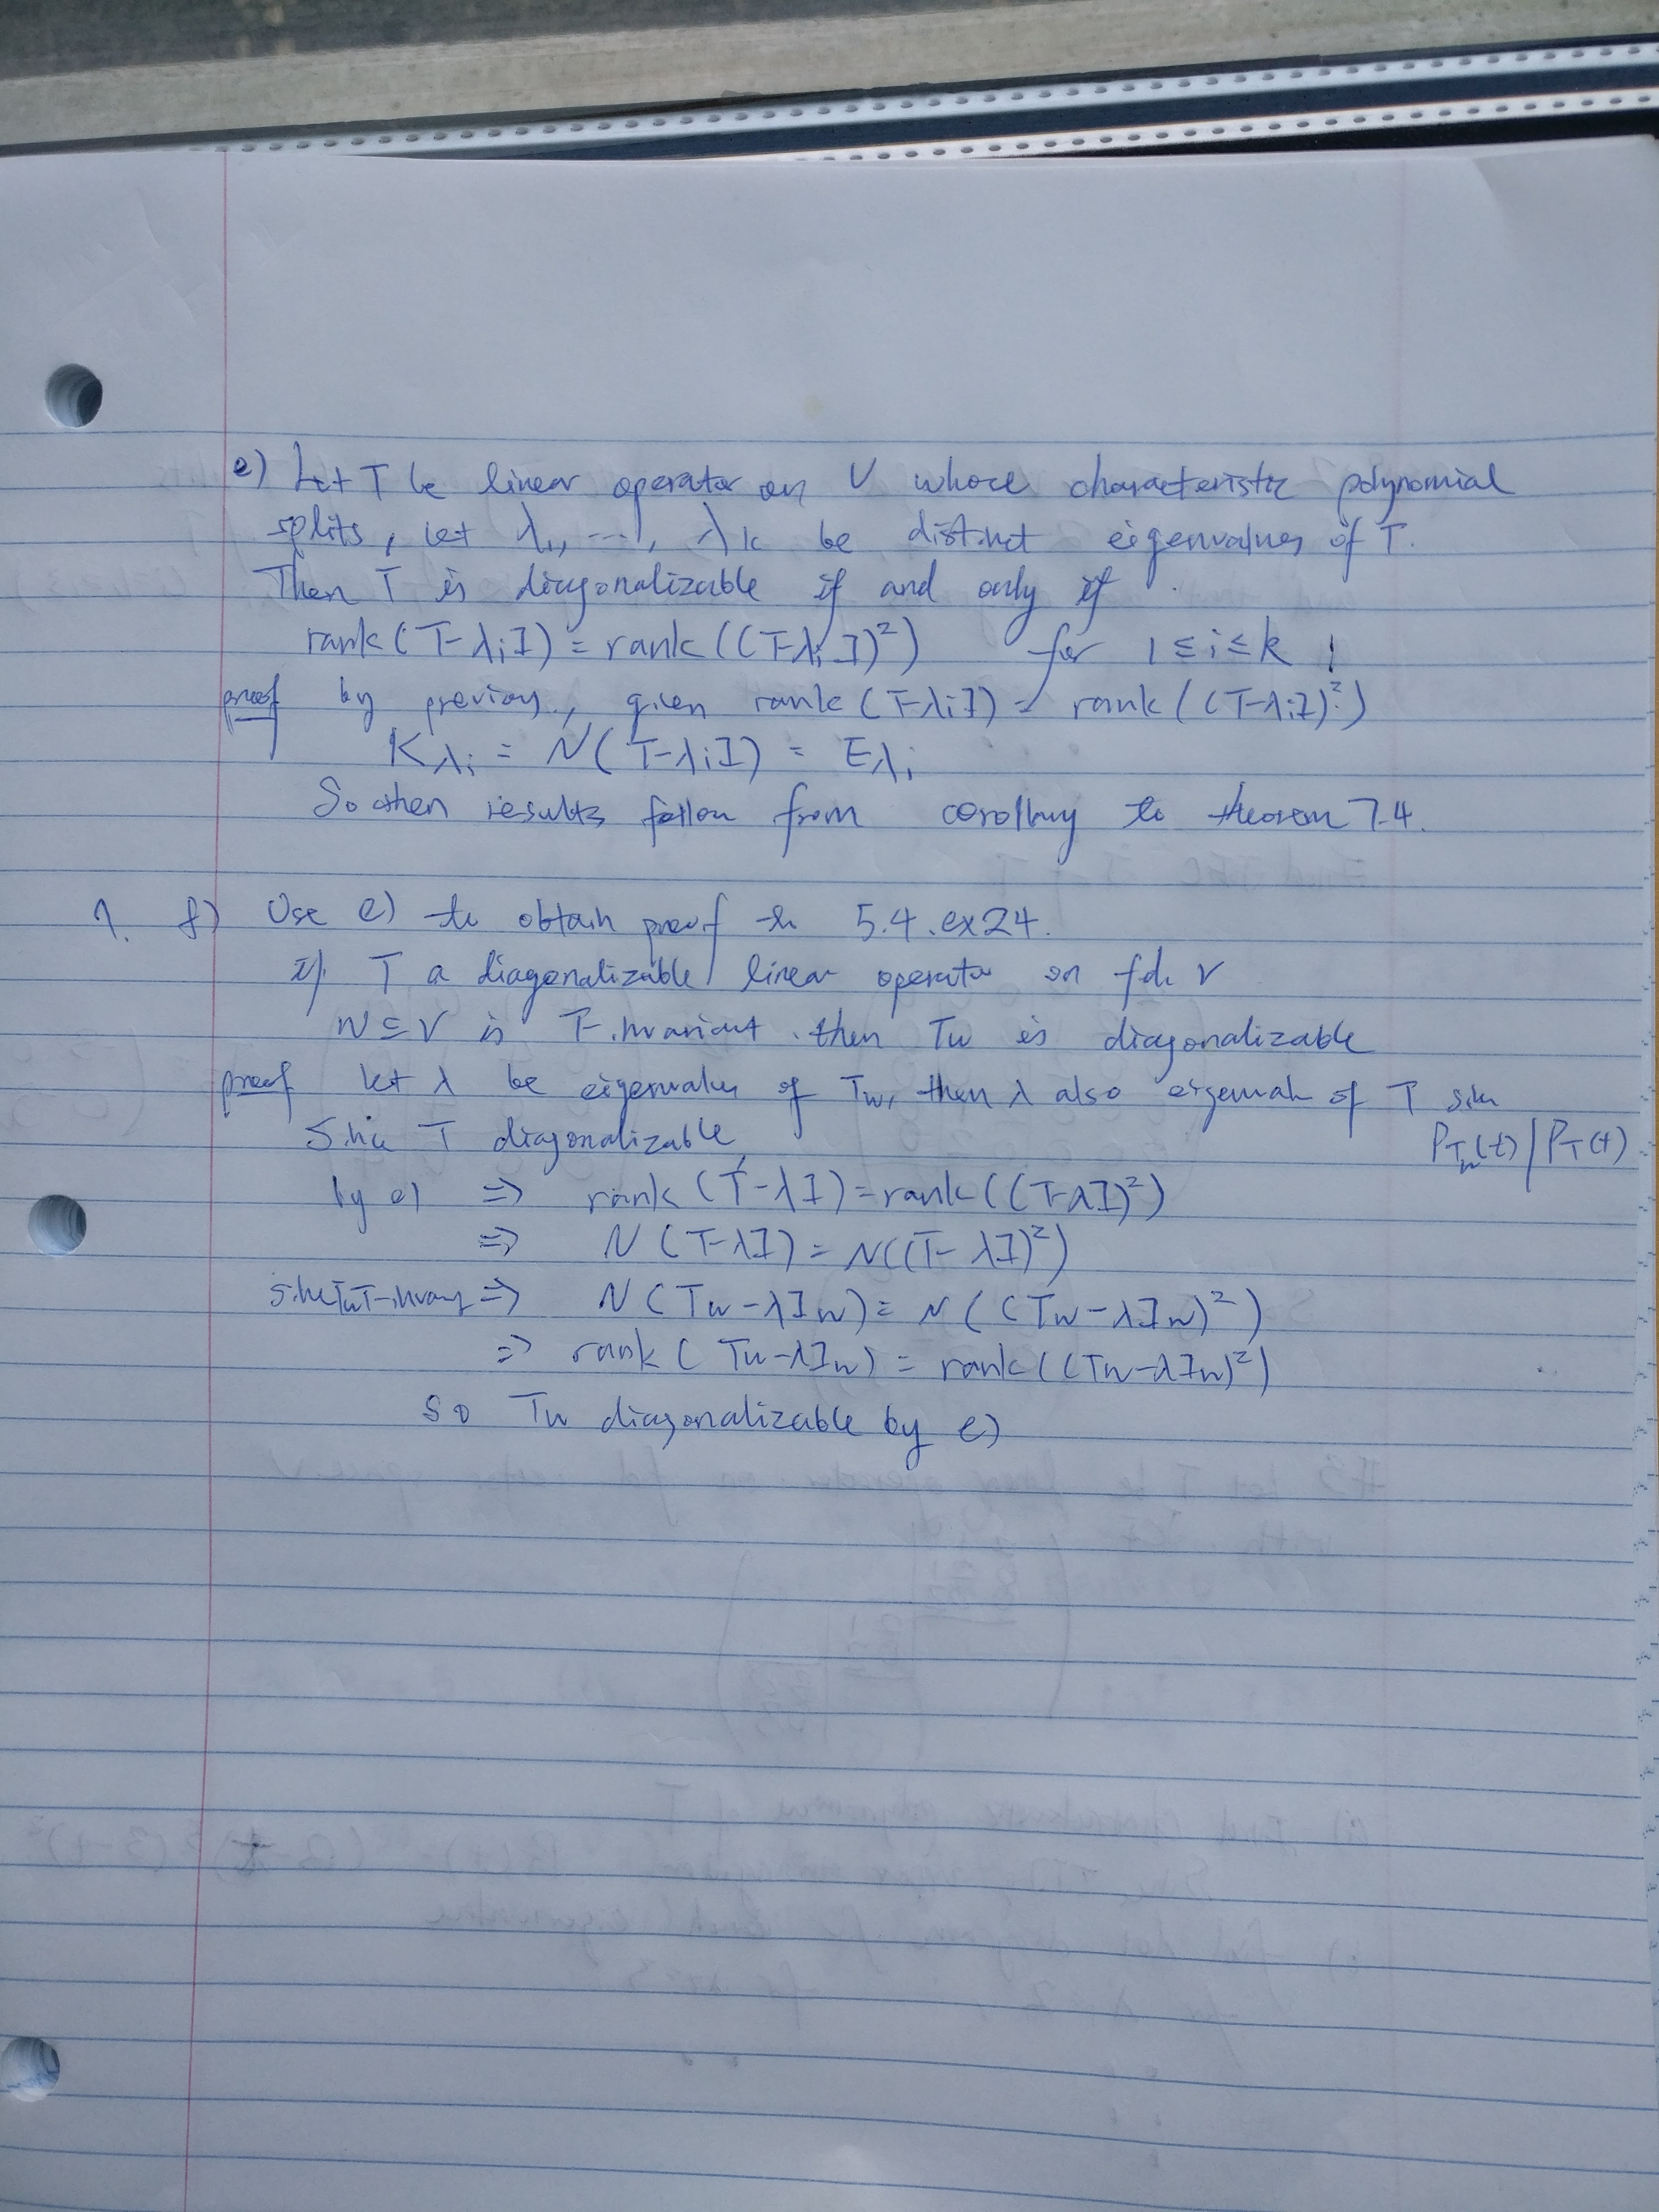 e) Let T be linear operator on V whose characteristic polynomial
splits, let λ₁, ..., λk be distinct eigenvalues of T.
Then T is diagonalizable if and only if
rank(T-λᵢI) = rank((T-λᵢI)²) for 1 ≤ i ≤ k
proof by previous, given rank(T-λᵢI) = rank((T-λᵢI)²)
Kλᵢ = N(T-λᵢI) = Eλᵢ
So then results follow from corollary to theorem 7.4.
7. f) Use e) to obtain proof to 5.4.ex24.
If T a diagonalizable linear operator on fd. V
W ⊆ V is T-invariant. then Tw is diagonalizable
proof let λ be eigenvalue of Tw, then λ also eigenval of T sin
Since T diagonalizable, P_Tw(t) | P_T(t)
by e) ⇒ rank(T-λI) = rank((T-λI)²)
⇒ N(T-λI) = N((T-λI)²)
⇒ N(Tw-λIw) = N((Tw-λIw)²)
⇒ rank(Tw-λIw) = rank((Tw-λIw)²)
So Tw diagonalizable by e)